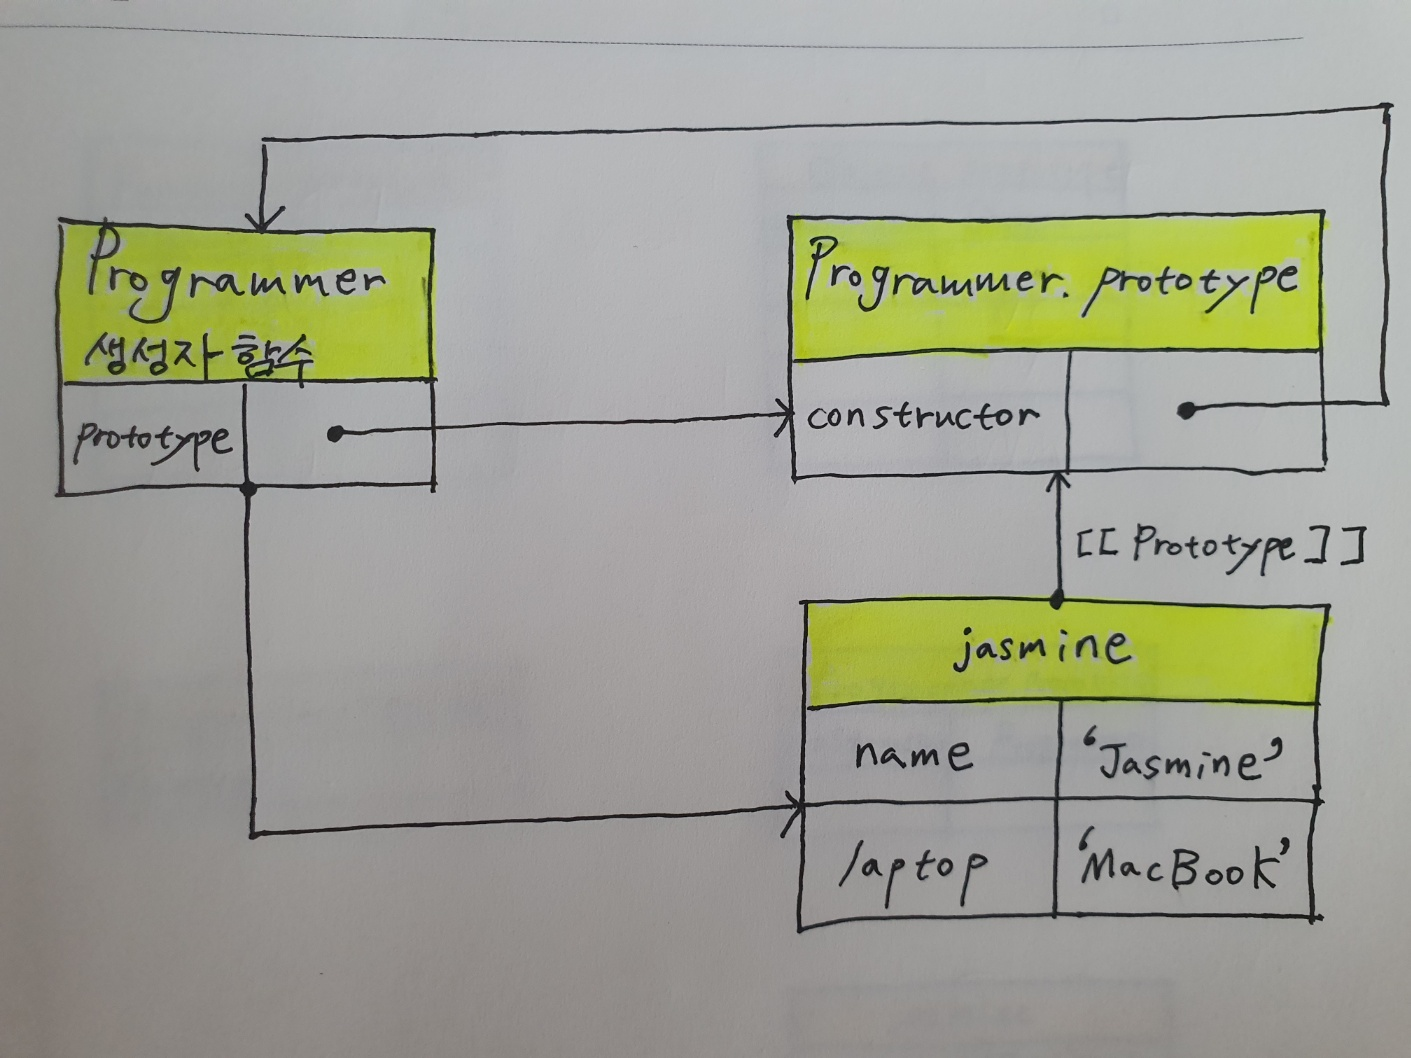 Programmer
생성자 함수
prototype
Programmer. prototype
constructor
[[Prototype]]
jasmine
name
'Jasmine'
laptop
'MacBook'